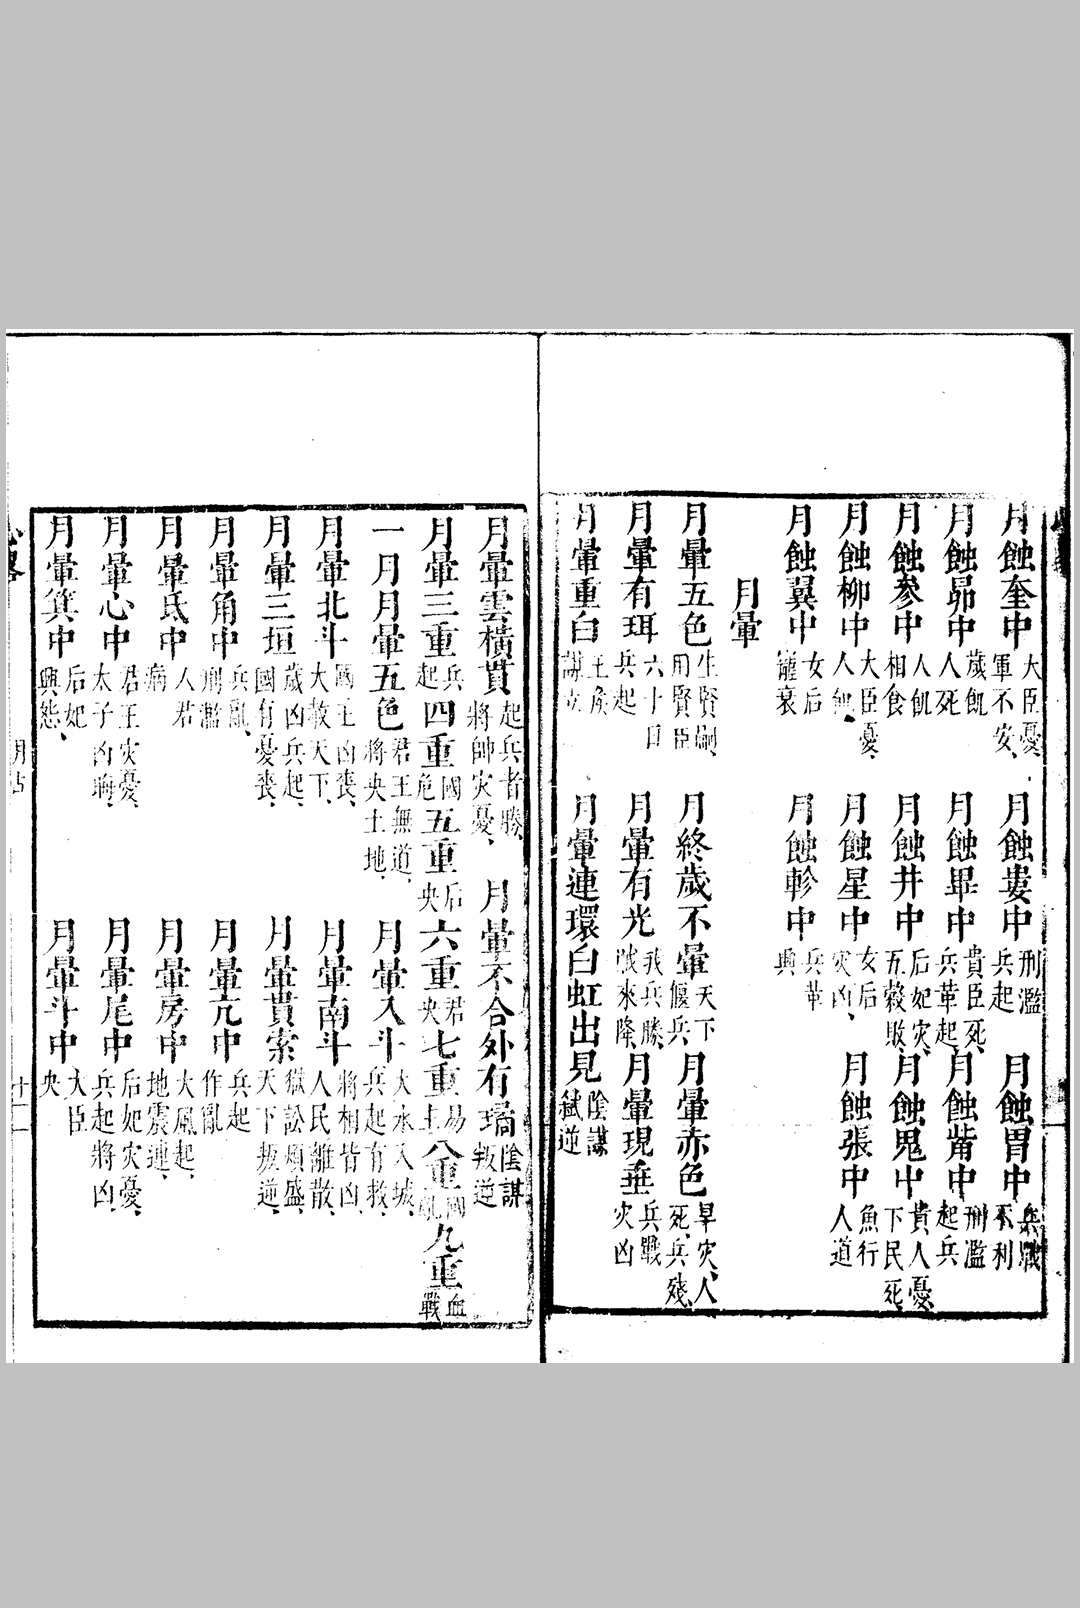 月蝕奎中 大臣憂軍不安 月蝕婁中 刑濫兵起 月蝕胃中 兵戰不利
月蝕昴中 歲飢人死 月蝕畢中 貴臣死兵革起 月蝕觜中 刑濫起兵
月蝕參中 人飢相食 月蝕井中 后妃灾五穀敗 月蝕鬼中 貴人憂下民死
月蝕柳中 大臣憂人飢 月蝕星中 女后灾凶 月蝕張中 魚行人道
月蝕翼中 女后寵衰 月蝕軫中 兵革興
月暈
月暈五色 生賢嗣用賢臣 月終歲不暈 天下偃兵 月暈赤色 旱灾人死兵殘
月暈有珥 六十日兵起 月暈有光 我兵勝賊來降 月暈現垂 兵戰灾凶
月暈重白 王侯謀立 月暈連環白虹出見 陰謀弒逆
月暈雲橫貫 起兵者勝將帥灾憂 月暈不合外有璚 陰謀叛逆
月暈三重 兵起 四重 國危 五重 后央 六重 君央 七重 易主 八重 國亂 九重 血戰
一月月暈五色 君王無道將央土地 月暈入斗 大水入城兵起有救
月暈北斗 國王凶喪大赦天下 月暈南斗 將相皆凶人民離散
月暈三垣 歲凶兵起國有憂喪 月暈貫索 獄訟煩盛天下叛逆
月暈角中 兵亂刑濫 月暈亢中 兵起作亂
月暈氐中 人君病 月暈房中 大風起地震連
月暈心中 君王灾憂太子凶晦 月暈尾中 后妃灾憂兵起將凶
月暈箕中 后妃興態 月暈斗中 大臣央
月占
十一